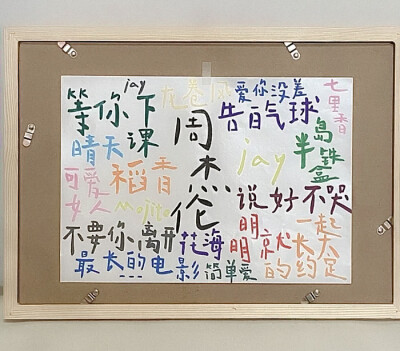 jay
龙卷风
爱你没差
七里香
等你下课
告白气球
周杰伦
半岛铁盒
晴天
稻香
jay
可爱女人
Mojito
说好不哭
不要你离开
花海
明明就
一起长大的约定
最长的电影
简单爱